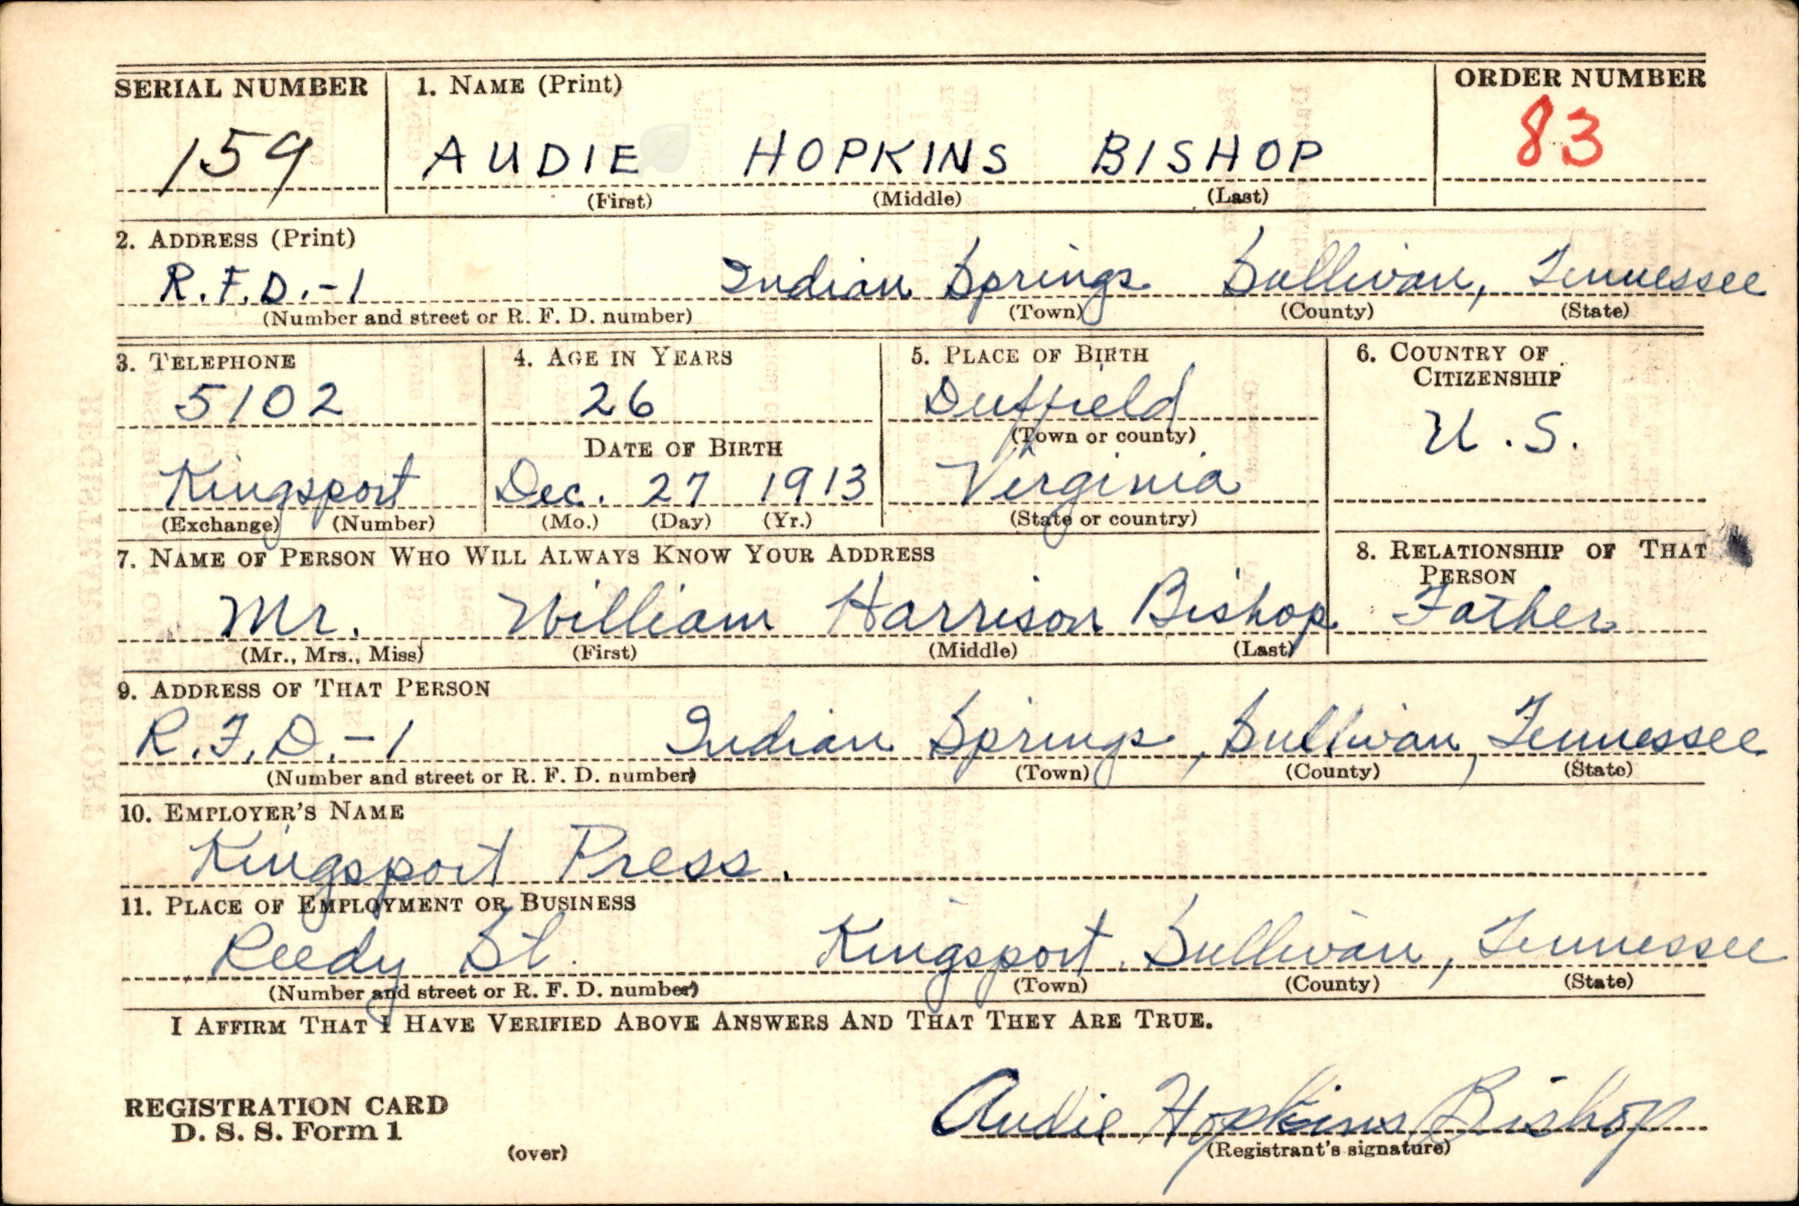 SERIAL NUMBER 1. NAME (Print) ORDER NUMBER
159 AUDIE HOPKINS BISHOP 83
(First) (Middle) (Last)
2. ADDRESS (Print)
R.F.D.-1 Indian Springs Sullivan, Tennessee
(Number and street or R. F. D. number) (Town) (County) (State)
3. TELEPHONE 4. AGE IN YEARS 5. PLACE OF BIRTH 6. COUNTRY OF CITIZENSHIP
5102 26 Duffield U.S.
DATE OF BIRTH (Town or county)
Kingsport Dec. 27 1913 Virginia
(Exchange) (Number) (Mo.) (Day) (Yr.) (State or country)
7. NAME OF PERSON WHO WILL ALWAYS KNOW YOUR ADDRESS 8. RELATIONSHIP OF THAT PERSON
Mr. William Harrison Bishop Father
(Mr., Mrs., Miss) (First) (Middle) (Last)
9. ADDRESS OF THAT PERSON
R.F.D.-1 Indian Springs, Sullivan, Tennessee
(Number and street or R. F. D. number) (Town) (County) (State)
10. EMPLOYER'S NAME
Kingsport Press.
11. PLACE OF EMPLOYMENT OR BUSINESS
Reedy St. Kingsport, Sullivan, Tennessee
(Number and street or R. F. D. number) (Town) (County) (State)
I AFFIRM THAT I HAVE VERIFIED ABOVE ANSWERS AND THAT THEY ARE TRUE.
REGISTRATION CARD
D. S. S. Form 1
Audie Hopkins Bishop
(over) (Registrant's signature)